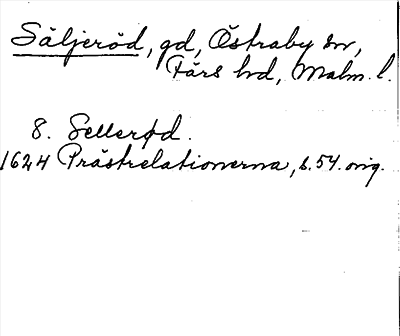 Säljeröd, gd, Östraby sn,
Färs hd, Malm. l.
8. Sellerød.
1624 Prästrelationerna, s. 54. orig.